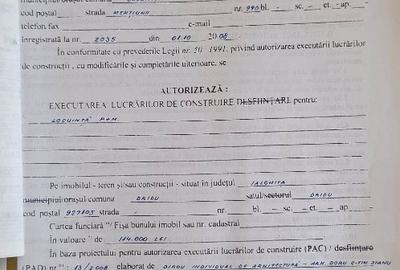 cod postal strada MENTIUNII nr. 990 bl. - sc. - et. - ap.
telefon fax e-mail
înregistrată la nr. 2035 din 01.10 2008
În conformitate cu prevederile Legii nr. 50 / 1991, privind autorizarea executării lucrărilor
de construcții, cu modificările și completările ulterioare, se
AUTORIZEAZĂ :
EXECUTAREA LUCRĂRILOR DE CONSTRUIRE DESFIINȚARE pentru:
LOCUINȚĂ P+M
Pe imobilul - teren și/sau construcții - situat în județul IALOMIȚA
municipiul/orașul/comuna DRIDU satul/sectorul DRIDU
cod poștal 927105 strada - nr. - bl. - sc. - et. - ap. -
Cartea funciară Fișa bunului imobil sau nr. cadastral
În valoare de 114.000 LEI
În baza proiectului pentru autorizarea executării lucrărilor de construire (PAC) / desființare
(PAD) nr. 13 / 2008 elaborat de BIROU INDIVIDUAL DE ARHITECTURĂ - ARH. DORU